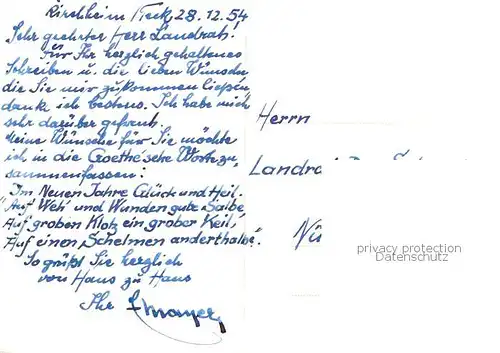 Kirchheim Teck, 28.12.54
Sehr geehrter Herr Landrat!
Für Ihr herzlich gehaltenes
Schreiben u. die lieben Wünsche,
die Sie mir zukommen ließen,
danke ich bestens. Ich habe mich
sehr darüber gefreut.
Meine Wünsche für Sie möchte
ich in die Goethe'sche Worte zu=
sammenfassen:
"Im Neuen Jahre Glück und Heil.
Auf Weh' und Wunden gute Salbe,
Auf groben Klotz ein grober Keil,
Auf einen Schelmen anderthalbe".
So grüßt Sie herzlich
von Haus zu Haus
Ihr Mayer
Herrn
Landra
Nü
privacy protection
Datenschutz